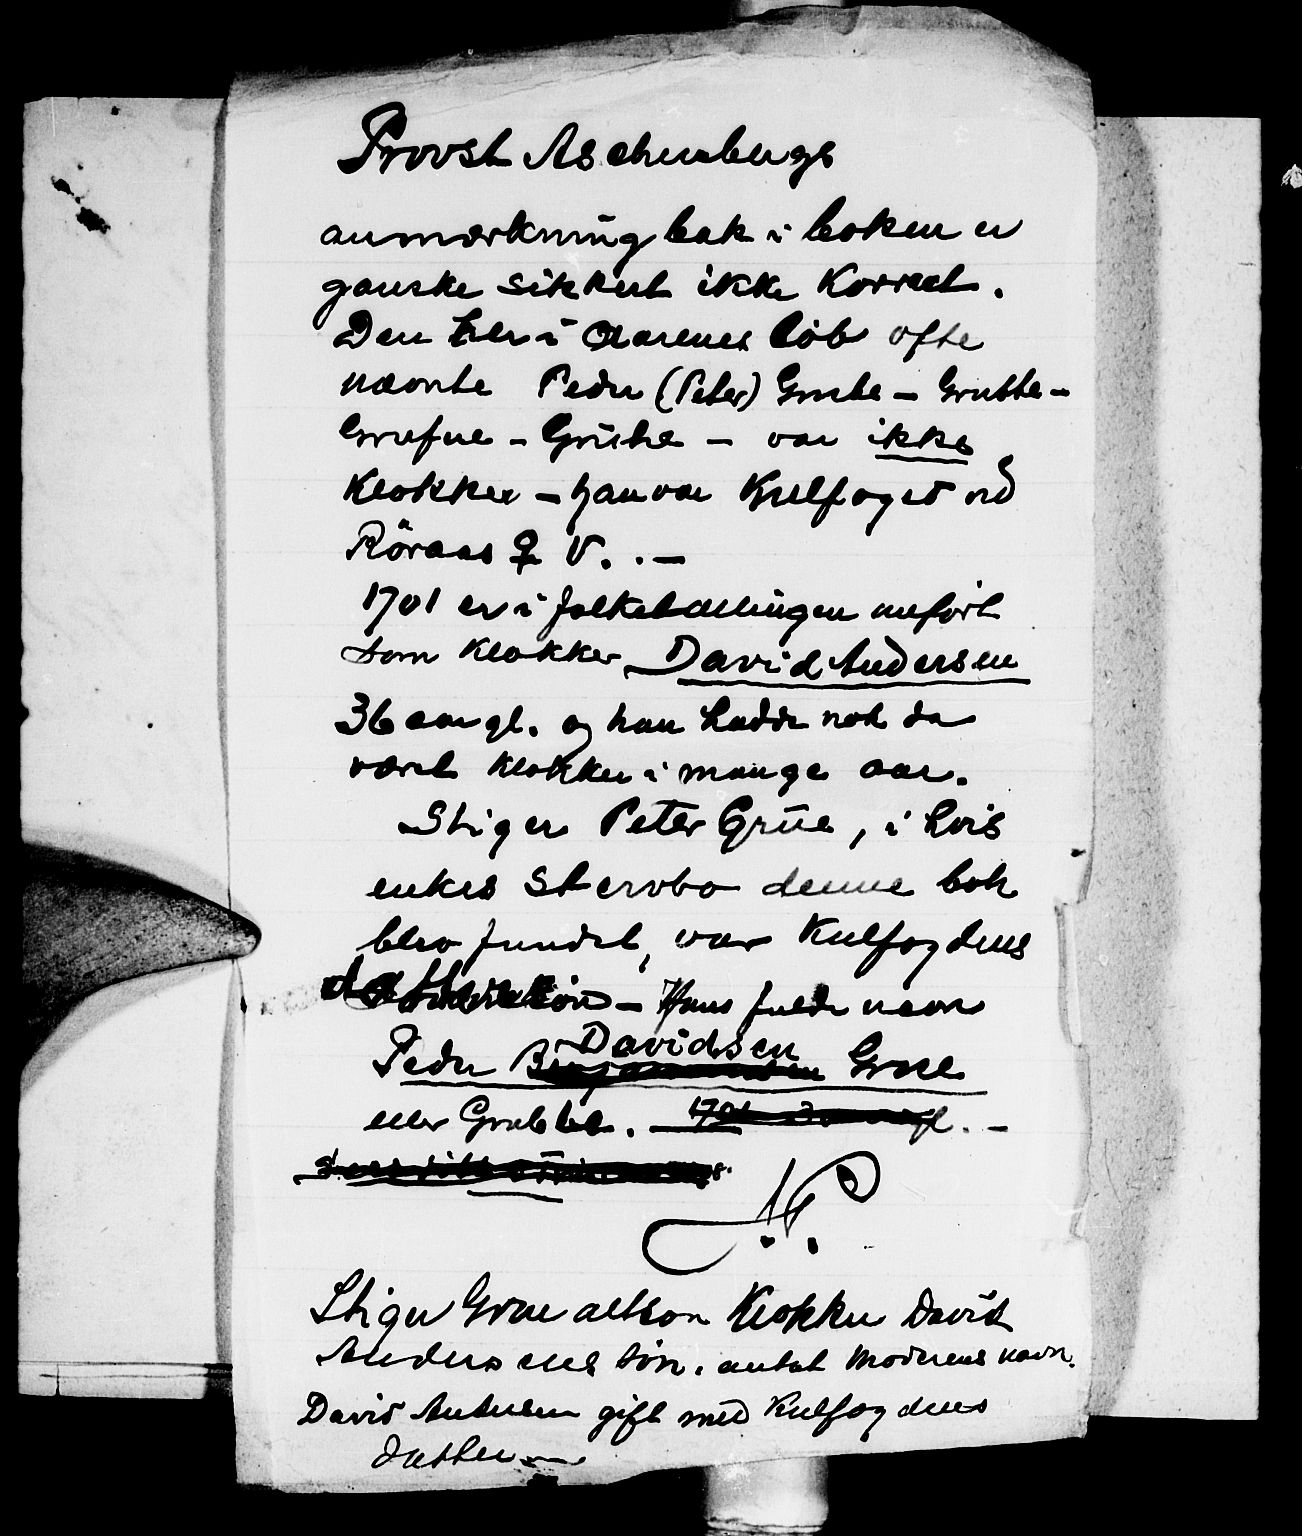 Provst Aschenbergs
anmærkning bak i boken er
ganske sikkert ikke korrect.
Den her i Aarenes løb ofte
nævnte Peder (Peter) Grube - Grubbe -
Grufue - Grühe - var ikke
klokker - han var Kulfoged ved
Röraas V. . -
1701 er i folketællingen anført
som klokker David Andersen
36 aar gl. og han hadde nok da
været klokker i mange aar.
Stiger Peter Grüe, i hvis
enkes stervbo denne bok
blev fundet, var Kulfogdens
dattersøn - Hans fulde navn
Peder Davidsen Grue
eller Grubbe. 1701 gl. -
N.P.
Stiger Grue altson Klokker David
Andersens søn, antat moderens navn.
David Andersen gift med Kulfogdens
datter -